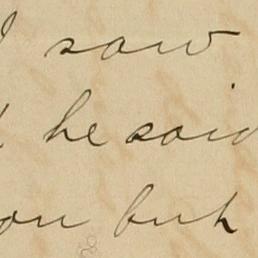 I saw
he said
you but